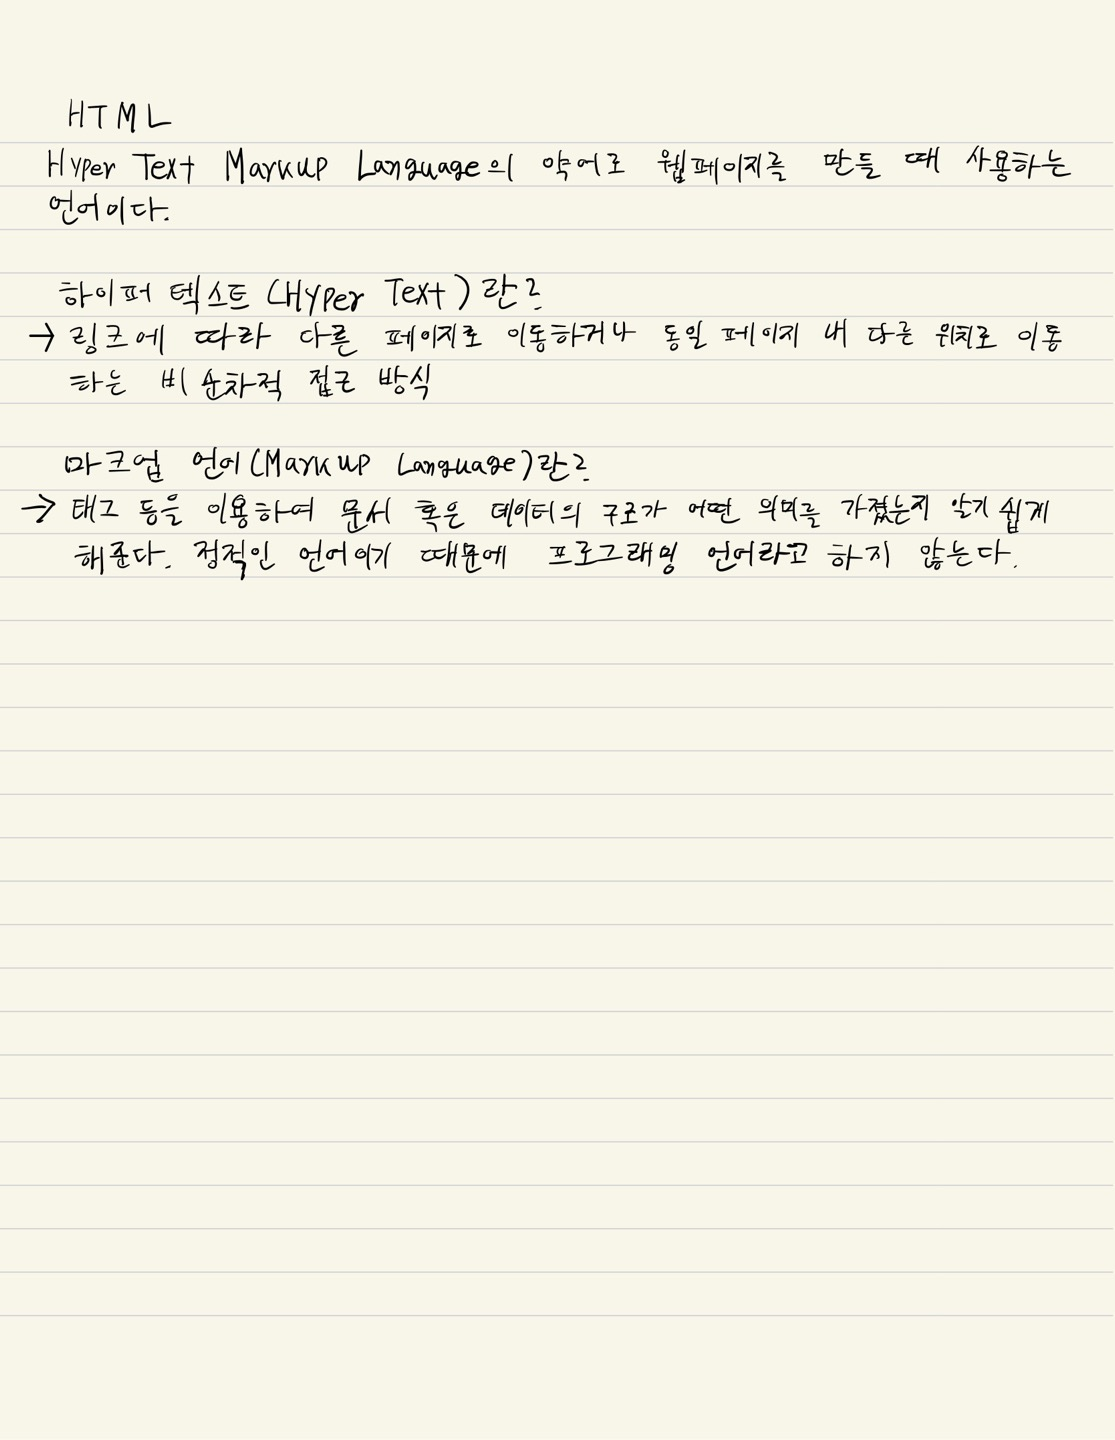 HTML
Hyper Text Markup Language의 약어로 웹페이지를 만들 때 사용하는
언어이다.
하이퍼 텍스트(Hyper Text)란?
→ 링크에 따라 다른 페이지로 이동하거나 동일 페이지 내 다른 위치로 이동
하는 비 순차적 접근 방식
마크업 언어(Markup Language)란?
→ 태그 등을 이용하여 문서 혹은 데이터의 구조가 어떤 의미를 가졌는지 알기 쉽게
해준다. 정적인 언어이기 때문에 프로그래밍 언어라고 하지 않는다.